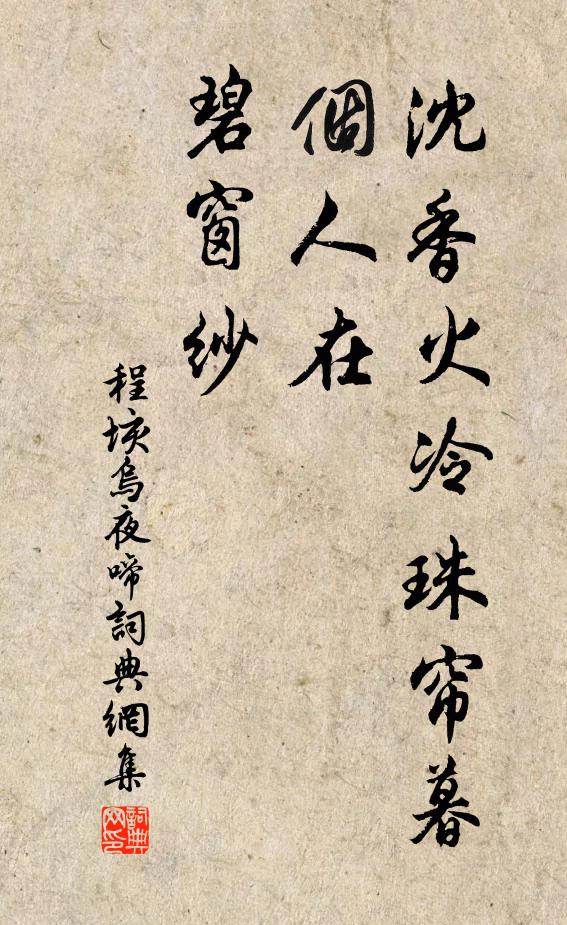 沈香火冷珠帘暮
個人在
碧窗紗
程垓烏夜啼詞典網集
詞典
网印